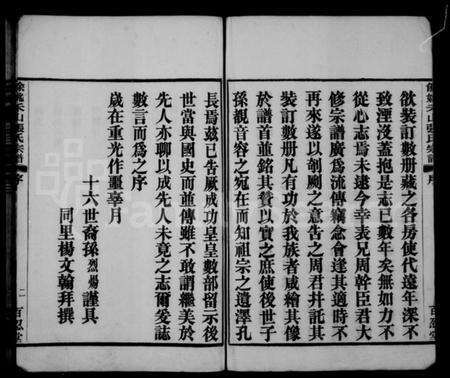 欲裝訂數册藏之各房使代遠年深不
致湮沒蓋抱是志已數年矣無如力不
從心志焉未遂今幸表兄周幹臣君大
修宗譜廣爲流傳竊念會逢其適時不
再來遂以剞劂之意告之周君幷託其
裝訂數册凡有功於我族者咸繪其像
於譜首並銘其贊以實之庶使後世子
孫觀音容之宛在而知祖宗之遺澤孔
長焉茲已告厥成功皇皇數部留示後
世當與國史而並傳雖不敢謂繼美於
先人亦聊以成先人未竟之志爾爰誌
數言而爲之序
歲在重光作噩辜月
十六世裔孫烈煬謹具
同里楊文翰拜撰
序
二
百忍堂